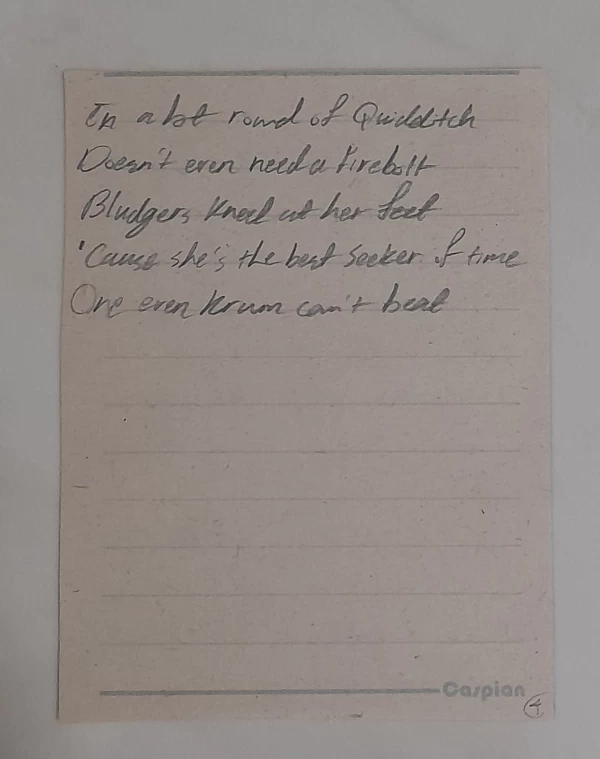 In a bot round of Quidditch
Doesn't even need a Firebolt
Bludgers kneel at her feet
'Cause she's the best seeker of time
One even Krum can't beat
Caspian
4